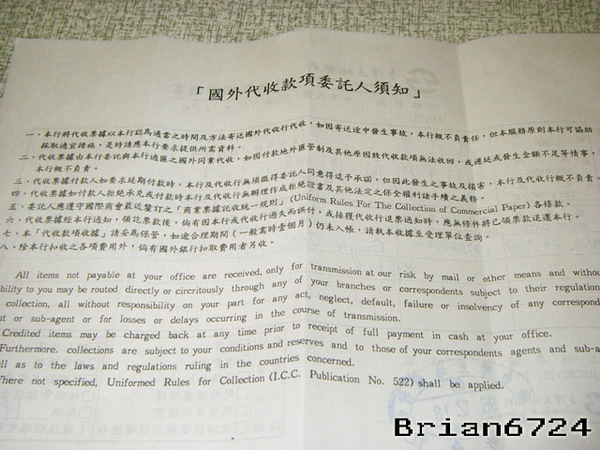 「國外代收款項委託人須知」
一、本行將代收票據以本行認為適當之時間及方法寄送國外收行代收，如因寄送途中發生事故，本行概不負責任，但本服務原則本行可協助
採取適宜措施，是時請應本行要求提供所需資料。
二、代收票據由本行委託與本行通匯之國外同業代收，如因付款地外匯管制及其他原因致代收款項無法收回、或遲延或發生金額不足等情事，
本行概不負責。
三、代收票據付款人如要求延期付款時，本行及代收行無須徵得委託人同意得逕予承諾，但因此發生之事故及損害，本行及代收行概不負責。
四、代收票據如付款人拒絕承兌或付款時本行及代收行無辦理作成拒絕證書及其他法定之保全權利諸手續之義務。
五、委託人應遵守國際商會最近釐訂之「商業票據託收統一規則」(Uniform Rules For The Collection of Commercial Paper)各條款。
六、代收票據經本行通知，領訖票款後，倘有因本行或代收行過失而誤付，或接獲代收行退票通知時，應無條件將已領票款退還本行。
七、本「代收款項收據」請妥為保管，如逾合理期間（一般需時壹個月）仍未入帳，請執本收據至受理單位查詢。
八、除本行扣收之各項費用外，倘有國外銀行扣取費用者另收。
All items not payable at your office are received, only for transmission at our risk by mail or other means and withou
bility to you may be routed directly or circritously through any of your branches or correspondents subject to their regulation
collection, all without responsibility on your part for any act, neglect, default, failure or insolvency of any correspond
nt or sub-agent or for losses or delays occurring in the course of transmission.
Credited items may be charged back at any time prior to receipt of full payment in cash at your office.
Furthermore, collections are subject to your conditions and reserves and to those of your correspondents agents and sub-a
ell as to the laws and regulations ruling in the countries concerned.
Where not specified, Uniformed Rules for Collection (I.C.C. Publication No. 522) shall be applied.
Brian6724